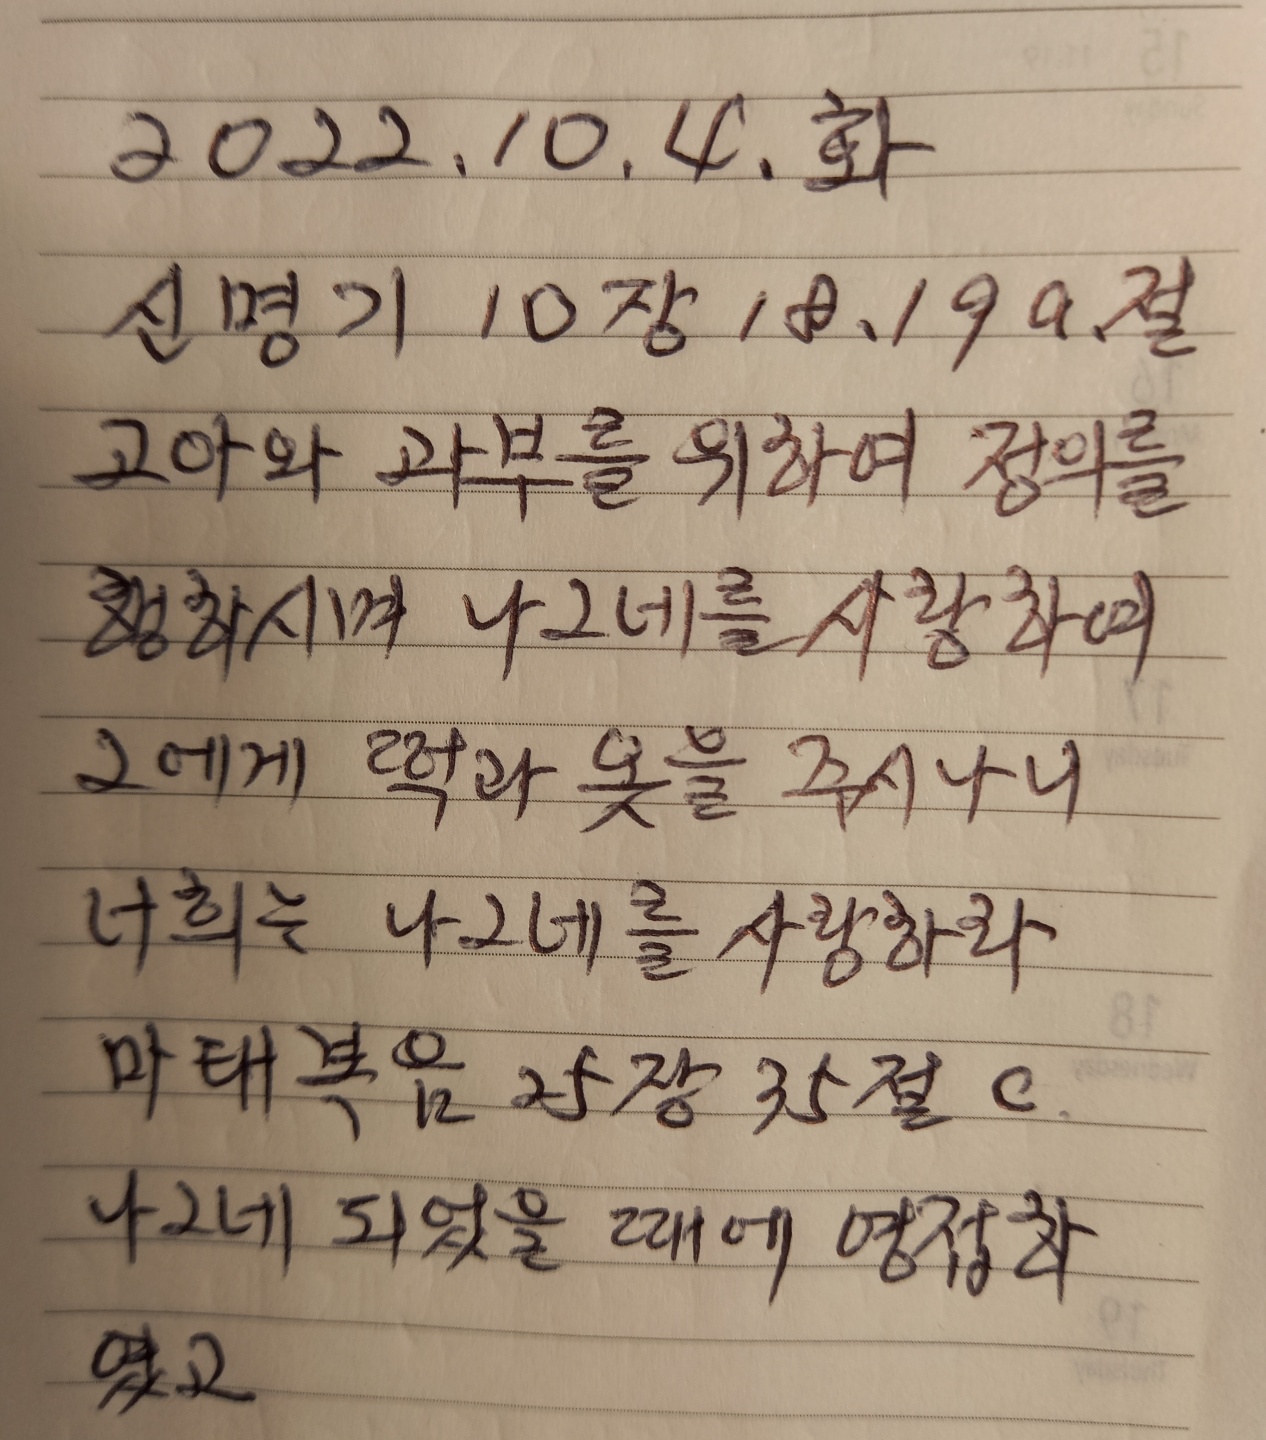 2022.10.4.화
신명기 10장 18.19a.절
고아와 과부를 위하여 정의를
행하시며 나그네를 사랑하여
그에게 떡과 옷을 주시나니
너희는 나그네를 사랑하라
마태복음 25장 35절 c.
나그네 되었을 때에 영접하
였고